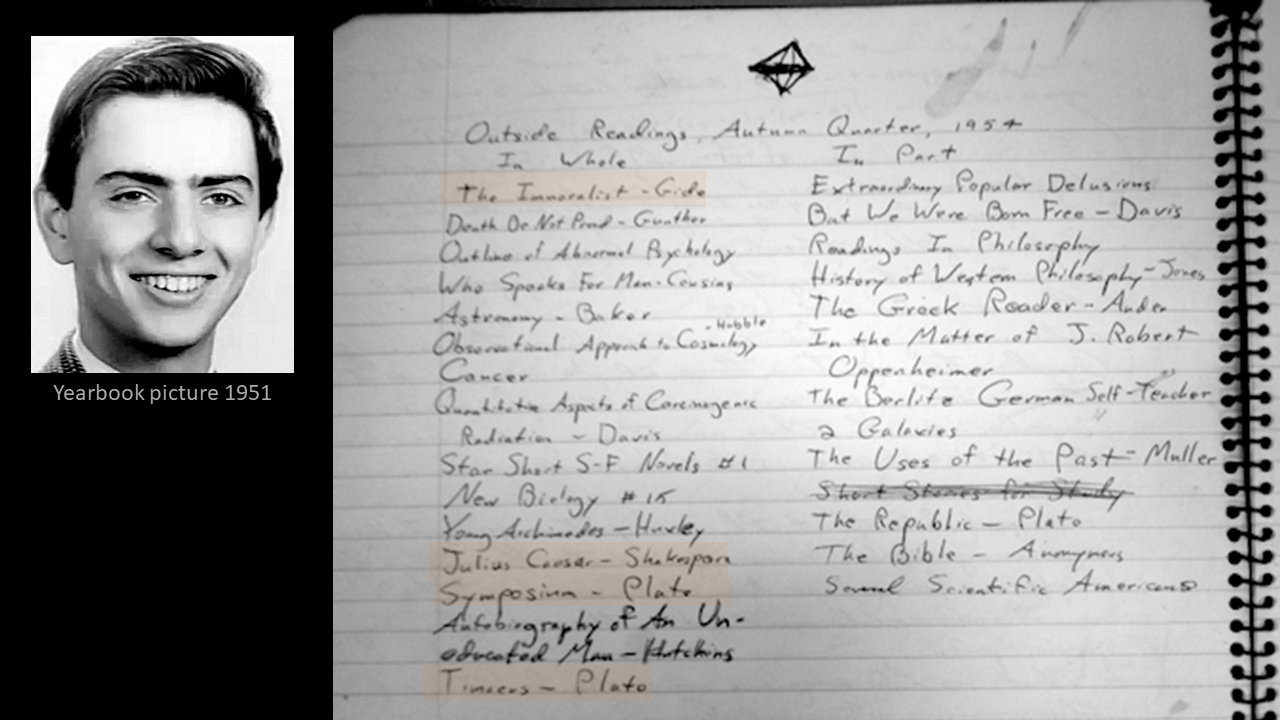 Yearbook picture 1951
Outside Readings, Autumn Quarter, 1954
In Whole
The Immoralist - Gide
Death Be Not Proud - Gunther
Outline of Abnormal Psychology
Who Speaks For Man - Cousins
Astronomy - Baker
Observational Approach to Cosmology - Hubble
Cancer
Quantitative Aspects of Carcinogenic
Radiation - Davis
Star Short S-F Novels #1
New Biology #15
Young Archimedes - Huxley
Julius Caesar - Shakespeare
Symposium - Plato
Autobiography of An Un-
educated Man - Hutchins
Timaeus - Plato
In Part
Extraordinary Popular Delusions
But We Were Born Free - Davis
Readings In Philosophy
History of Western Philosophy - Jones
The Greek Reader - Auden
In the Matter of J. Robert
Oppenheimer
The Berlitz German Self-Teacher
2 Galaxies
The Uses of the Past - Muller
Short Stories for Study
The Republic - Plato
The Bible - Anonymous
Several Scientific Americans